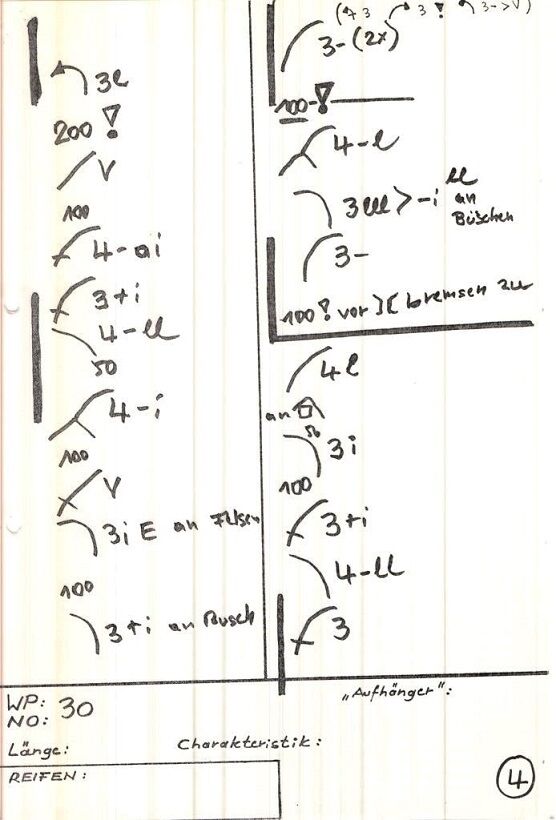 3l
200 !
V
100
4-ai
3+i
4-ll
50
4-i
100
V
3i E an Felsen
100
3+i an Busch
3 3 ! 3->V)
3-(2x)
100-!
4-l
3lll>-i ll an Büschen
3-
100! vor )( bremsen zu
4l
an
50
3i
100
3+i
4-ll
3
WP: 30
NO:
Länge:
Charakteristik:
„Aufhänger":
REIFEN:
4